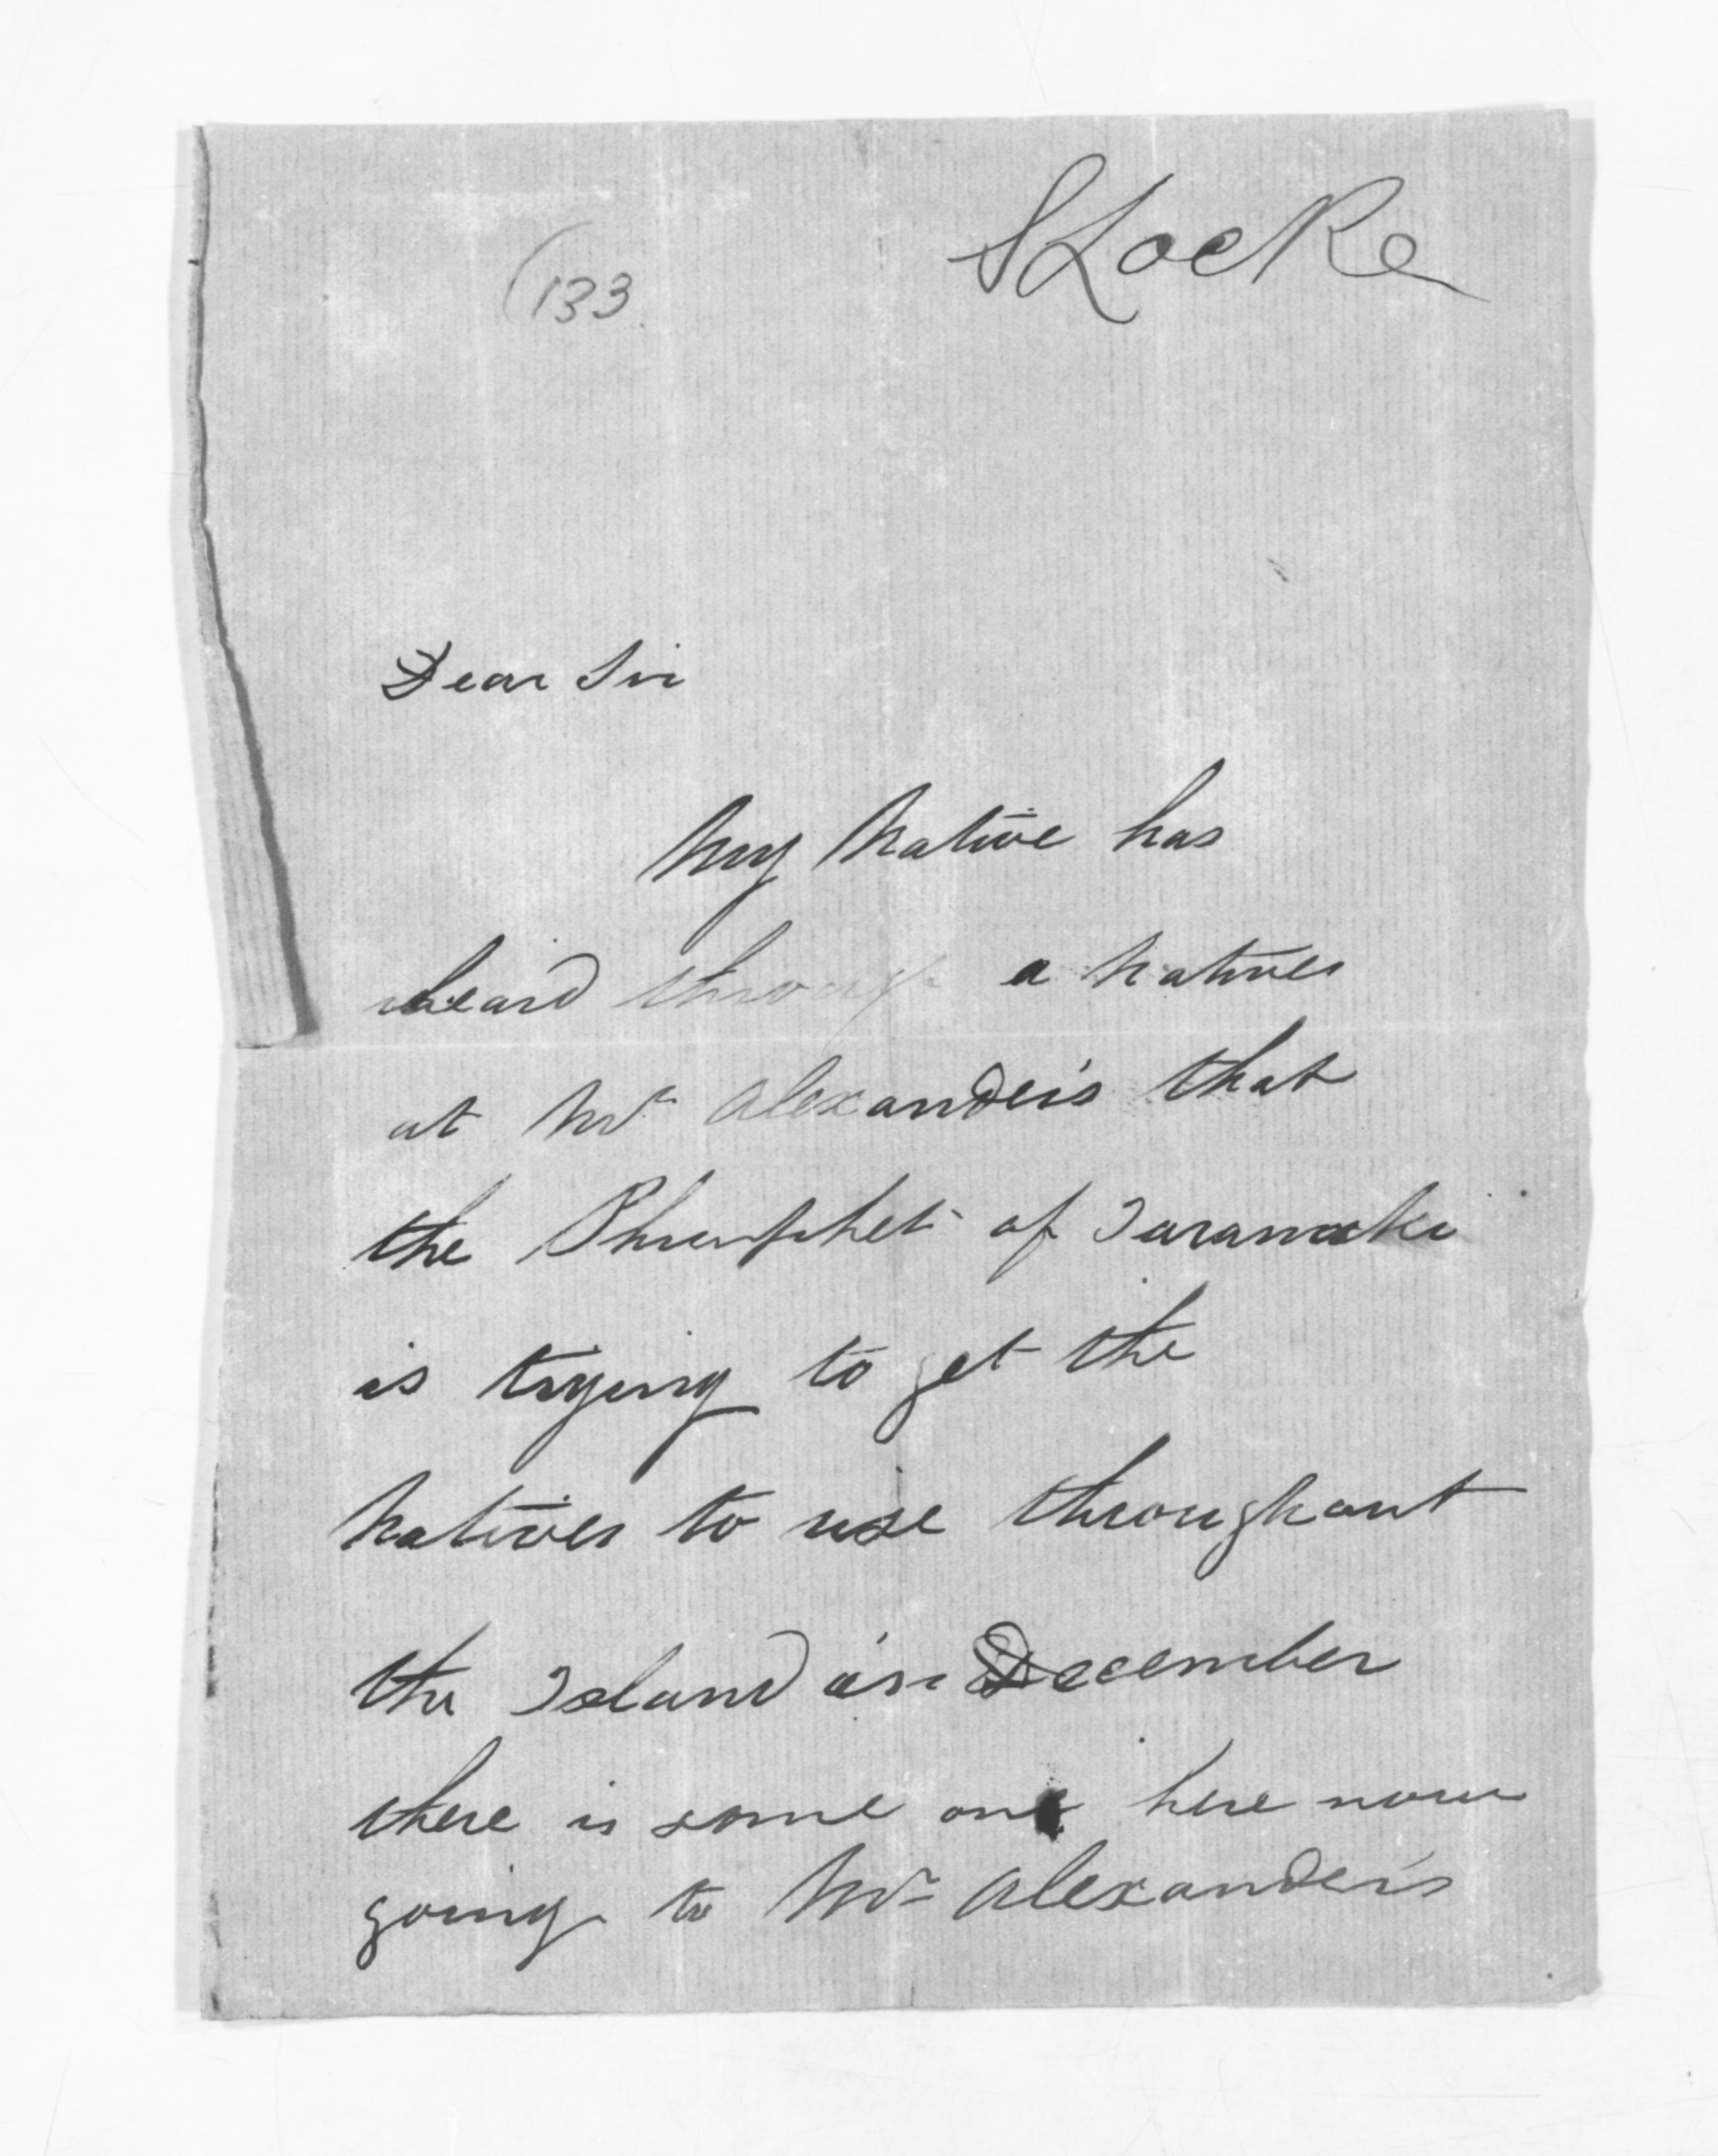 S Locke
(133
Dear Sir
My Native has
heard through a natives
at Mr Alexander's that
the Phrophet of Taranaki
is trying to get the
Natives to rise throughout
the Island in December
there is some one here now
going to Mr Alexander's